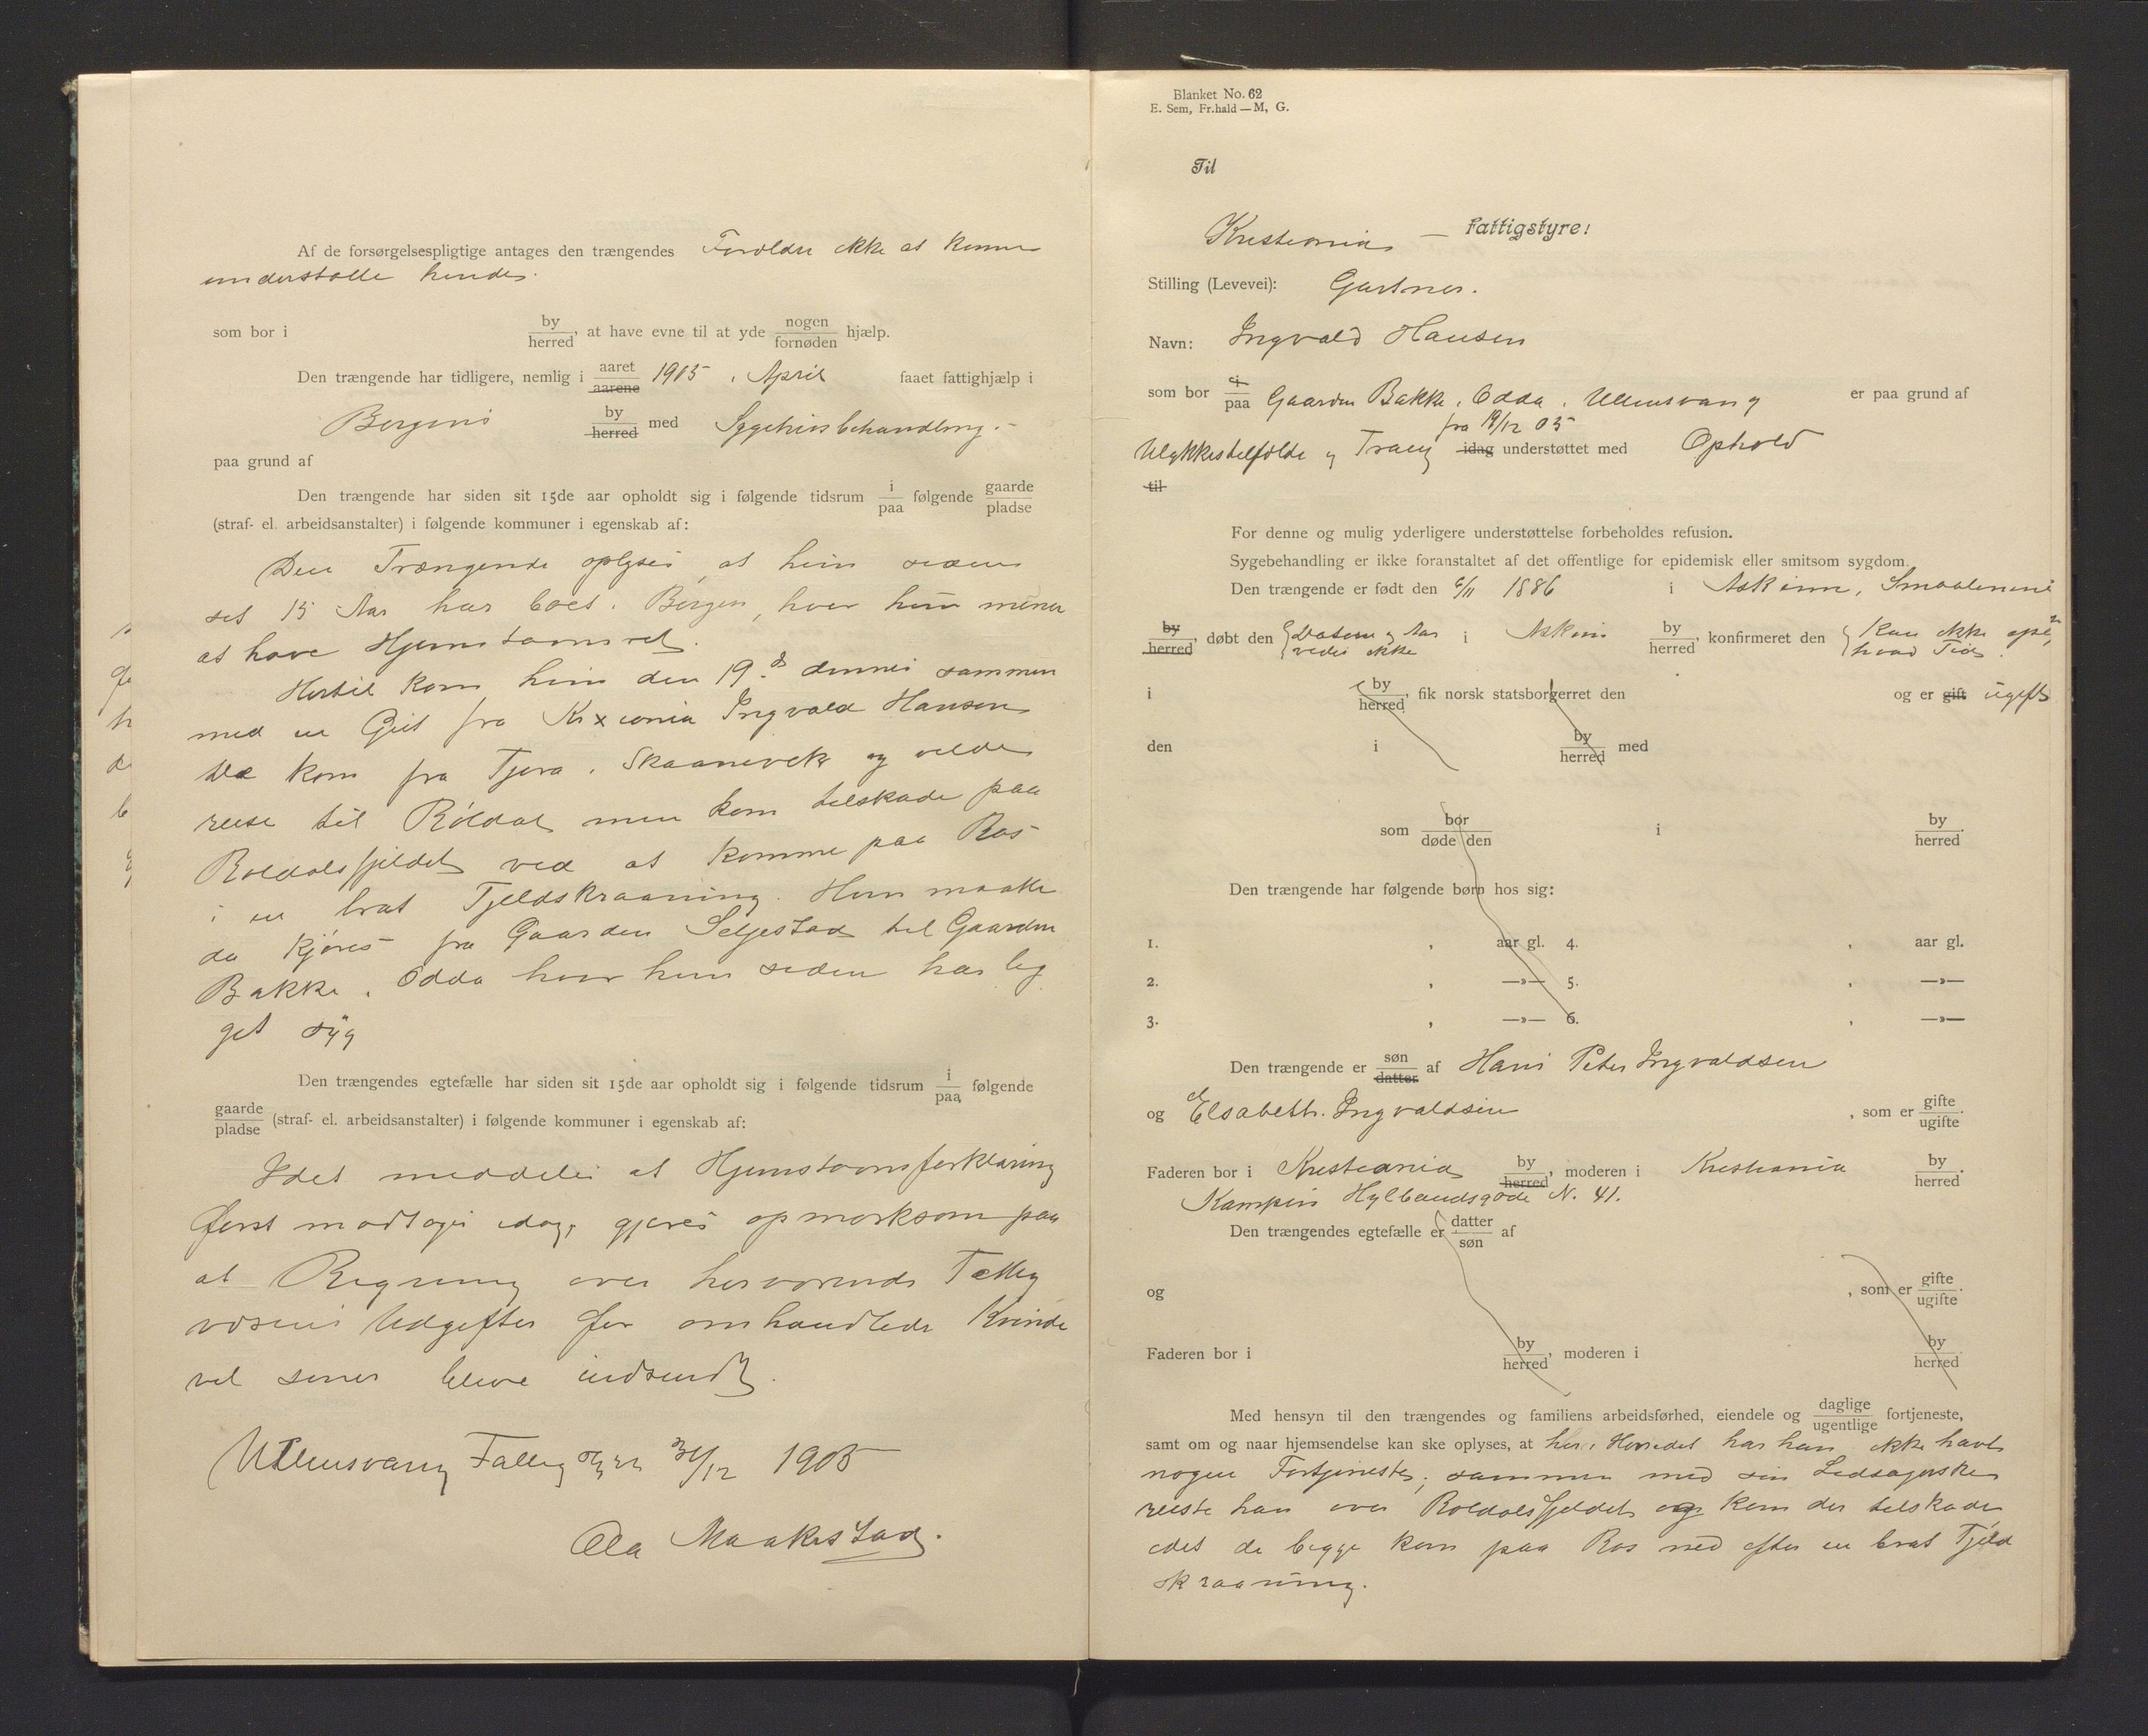 Af de forsørgelsespligtige antages den trængendes Forældre ikke at kunne
understøtte hende.
som bor i by/herred, at have evne til at yde nogen/fornøden hjælp.
Den trængende har tidligere, nemlig i aaret/aarene 1905 i April faaet fattighjælp i
Bergens by/herred med Sygehusbehandling.
paa grund af
Den trængende har siden sit 15de aar opholdt sig i følgende tidsrum i/paa følgende gaarde/pladse
(straf- el. arbeidsanstalter) i følgende kommuner i egenskab af:
Den Trængende oplyser, at hun siden
sit 15 Aar har boet i Bergen, hvor hun mener
at have Hjemstavnsret.
Hertil kom hun den 19d dennes sammen
med en Gut fra Kr×ania Ingvald Hansen
De kom fra Fjæra i Skaanevik og vilde
reise til Røldal men kom tilskade paa
Røldalsfjeldet ved at komme paa Ras
i en brat Fjeldskraaning. Hun maatte
da kjøres fra Gaarden Seljestad til Gaarden
Bakke i Odda hvor hun siden har lig
get syg
Den trængendes egtefælle har siden sit 15de aar opholdt sig i følgende tidsrum i/paa følgende
gaarde/pladse (straf- el. arbeidsanstalter) i følgende kommuner i egenskab af:
Idet meddeles at Hjemstavnsforklaring
først modtages idag, gjøres opmerksom paa
at Regning over herværende Fattig
væsens Udgifter for omhandlede Kvinde
vil senere blive indsendt.
Ullensvang Fattigstyre 31/12 1905
Ola Maakestad.
Blanket No. 62
E. Sem, Fr.hald—M, G.
Til
Kristiania — Fattigstyre!
Stilling (Levevei): Gartner.
Navn: Ingvald Hansen
som bor i/paa Gaarden Bakke i Odda i Ullensvang er paa grund af
fra 19/12 05
Ulykkestilfælde og Trang idag understøttet med Ophold
til
For denne og mulig yderligere understøttelse forbeholdes refusion.
Sygebehandling er ikke foranstaltet af det offentlige for epidemisk eller smitsom sygdom.
Den trængende er født den 6/11 1886 i Askim, Smaalenene
by/herred, døbt den Datum og Aar vides ikke i Askim by/herred, konfirmeret den kan ikke hvad Tid
i by/herred, fik norsk statsborgerret den og er gift ugift
den i by/herred med
som bor/døde den i by/herred.
Den trængende har følgende børn hos sig:
1. , aar gl. 4. , aar gl.
2. , —»— 5. , —»—
3. , —»— 6. , —»—
Den trængende er søn/datter af Hans Peter Ingvaldsen
og Elsabeth Ingvaldsen , som er gifte/ugifte.
Faderen bor i Kristiania by/herred, moderen i Kristiania by/herred.
Kampen Hylbaudsgade N. 41.
Den trængendes egtefælle er datter/søn af
og , som er gifte/ugifte.
Faderen bor i by/herred, moderen i by/herred.
Med hensyn til den trængendes og familiens arbeidsførhed, eiendele og daglige/ugentlige fortjeneste,
samt om og naar hjemsendelse kan ske oplyses, at her i Herredet har han ikke havt
nogen Fortjeneste, sammen med sin Ledsagerske
reiste han over Røldalsfjeldet og kom der tilskade
idet de begge kom paa Ras ned efter en brat Fjeld
skraaning.